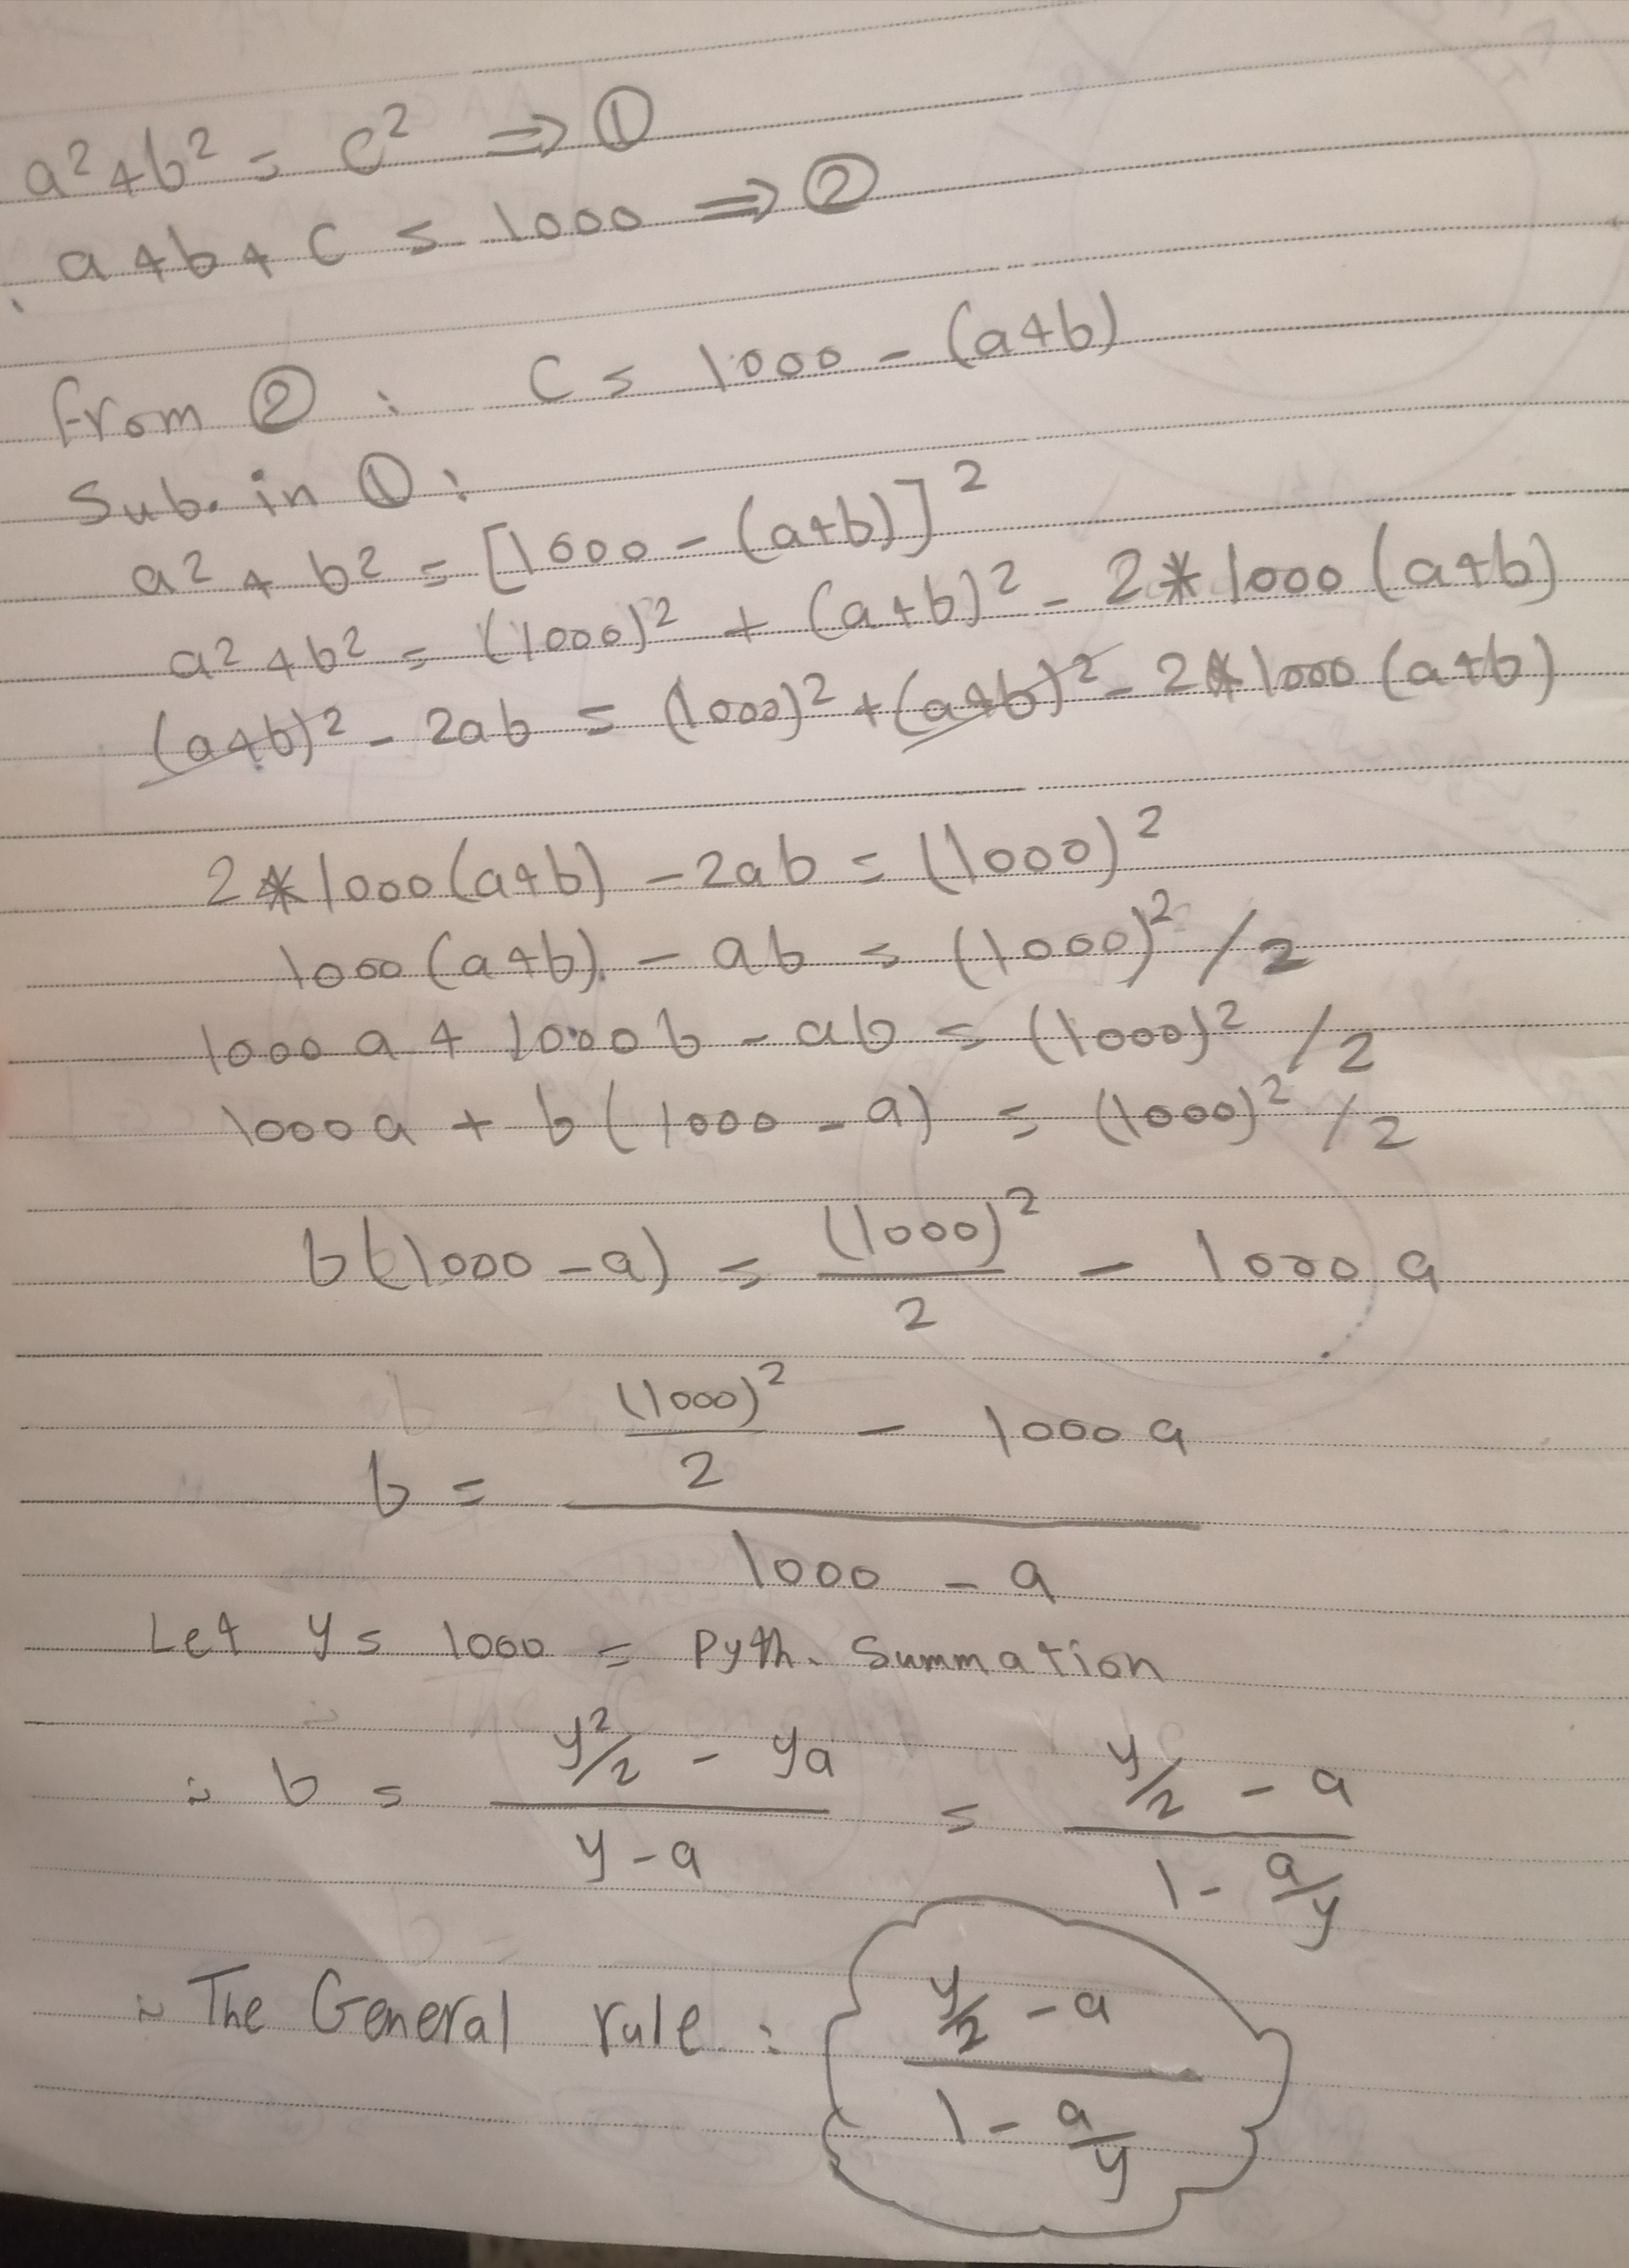 a² + b² = c² ⇒ ①
a + b + c = 1000 ⇒ ②
From ② : c = 1000 - (a+b)
Sub. in ① :
a² + b² = [1000 - (a+b)]²
a² + b² = (1000)² + (a+b)² - 2*1000(a+b)
(a+b)² - 2ab = (1000)² + (a+b)² - 2*1000(a+b)
2*1000(a+b) - 2ab = (1000)²
1000(a+b) - ab = (1000)² / 2
1000a + 1000b - ab = (1000)² / 2
1000a + b(1000 - a) = (1000)² / 2
b(1000 - a) = (1000)² / 2 - 1000a
b = ((1000)² / 2 - 1000a) / (1000 - a)
Let y = 1000 = Pyth. Summation
∴ b = (y²/2 - ya) / (y - a) = (y/2 - a) / (1 - a/y)
∴ The General rule : (y/2 - a) / (1 - a/y)